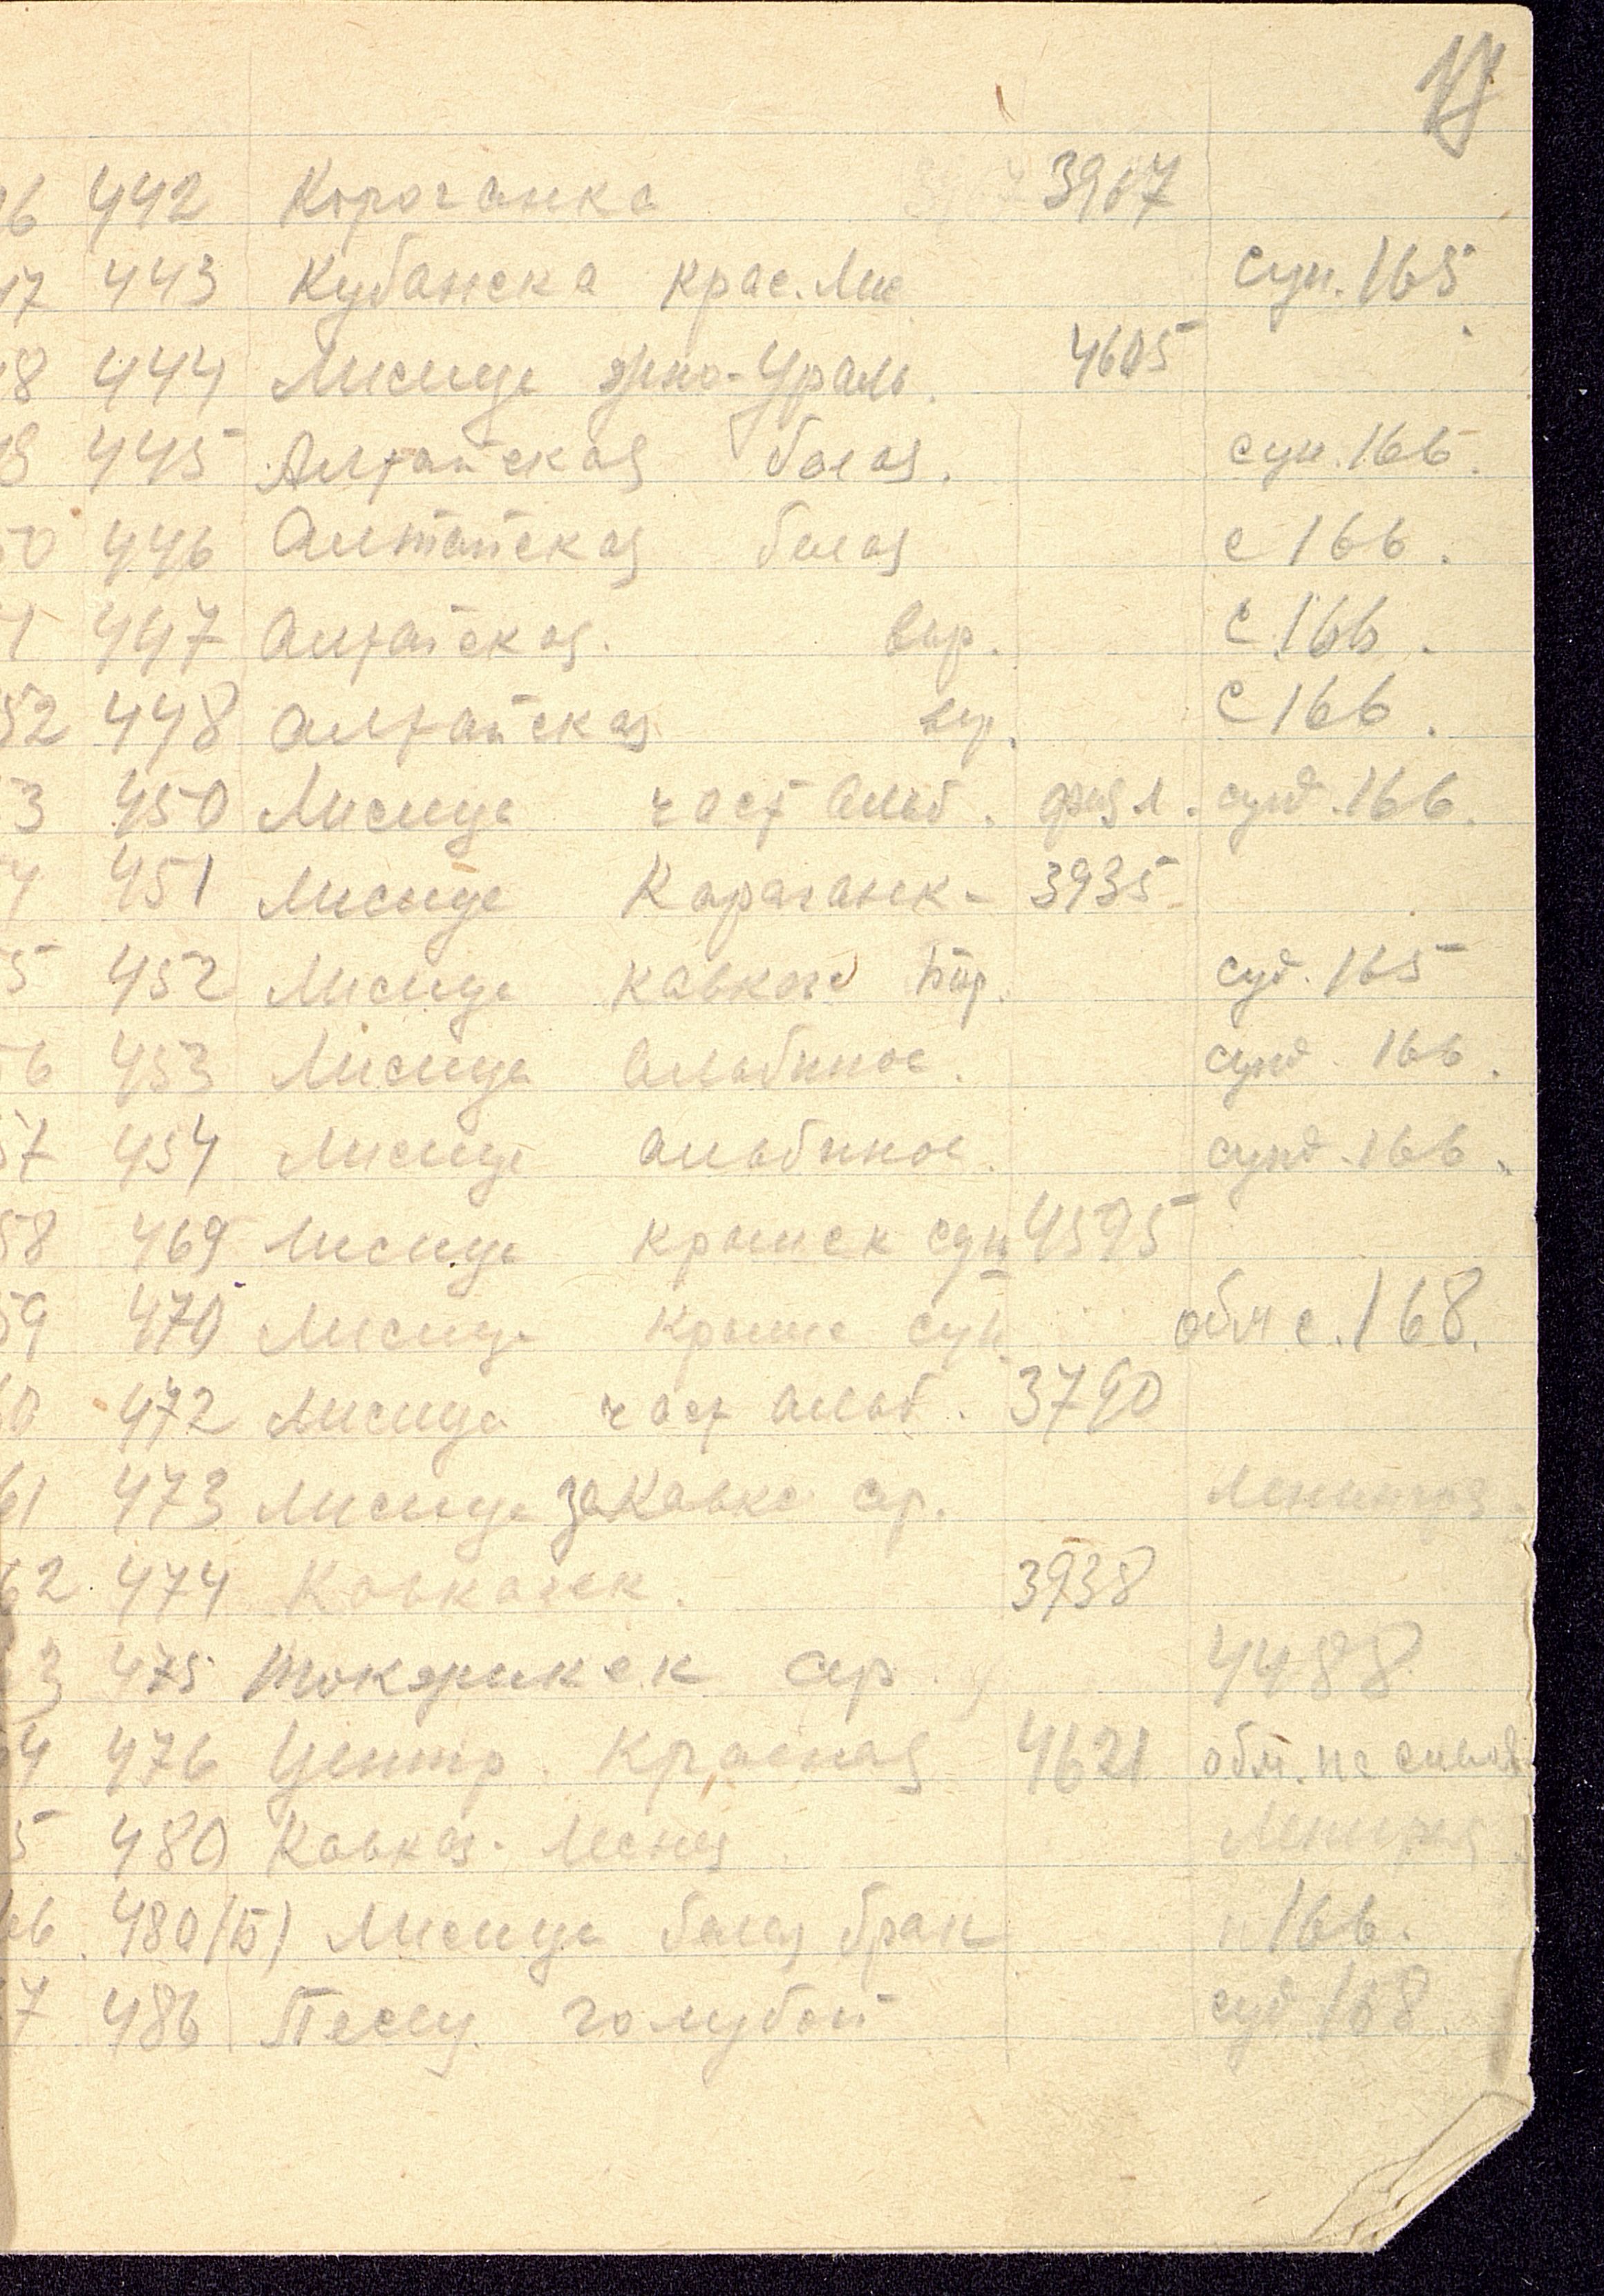 17
16 442 Караганка 3967 3907
17 443 Кубанска крас. Лис сун. 165
18 444 Лисица южно-Ураль. 4605
18 445 Алтайская белая. сун. 166.
50 446 Алтайская белая с 166.
1 447 Алтайская. сер. с 166.
52 448 Алтайская сер. с 166.
3 450 Лисица част альб. физл. сунд. 166.
4 451 Лисица Караганск- 3935
5 452 Лисица Кавказс сер. суд. 165
6 453 Лисица альбинос. сунд 166.
57 454 Лисица альбинос. сунд. 166.
58 469 Лисица крымск сун 4595
59 470 Лисица крымс сун. обм с. 168.
0 472 Лисица част альб. 3790
61 473 Лисица закавкс ср. Ленингр.
62 474 Кавказск. 3938
3 475 ср 4488
64 476 Центр. Красная 4621 обм. на
5 480 Кавказ. Лесная
66. 480/б) Лисица белая брак 166.
7 486 Песец голубой суд 168.